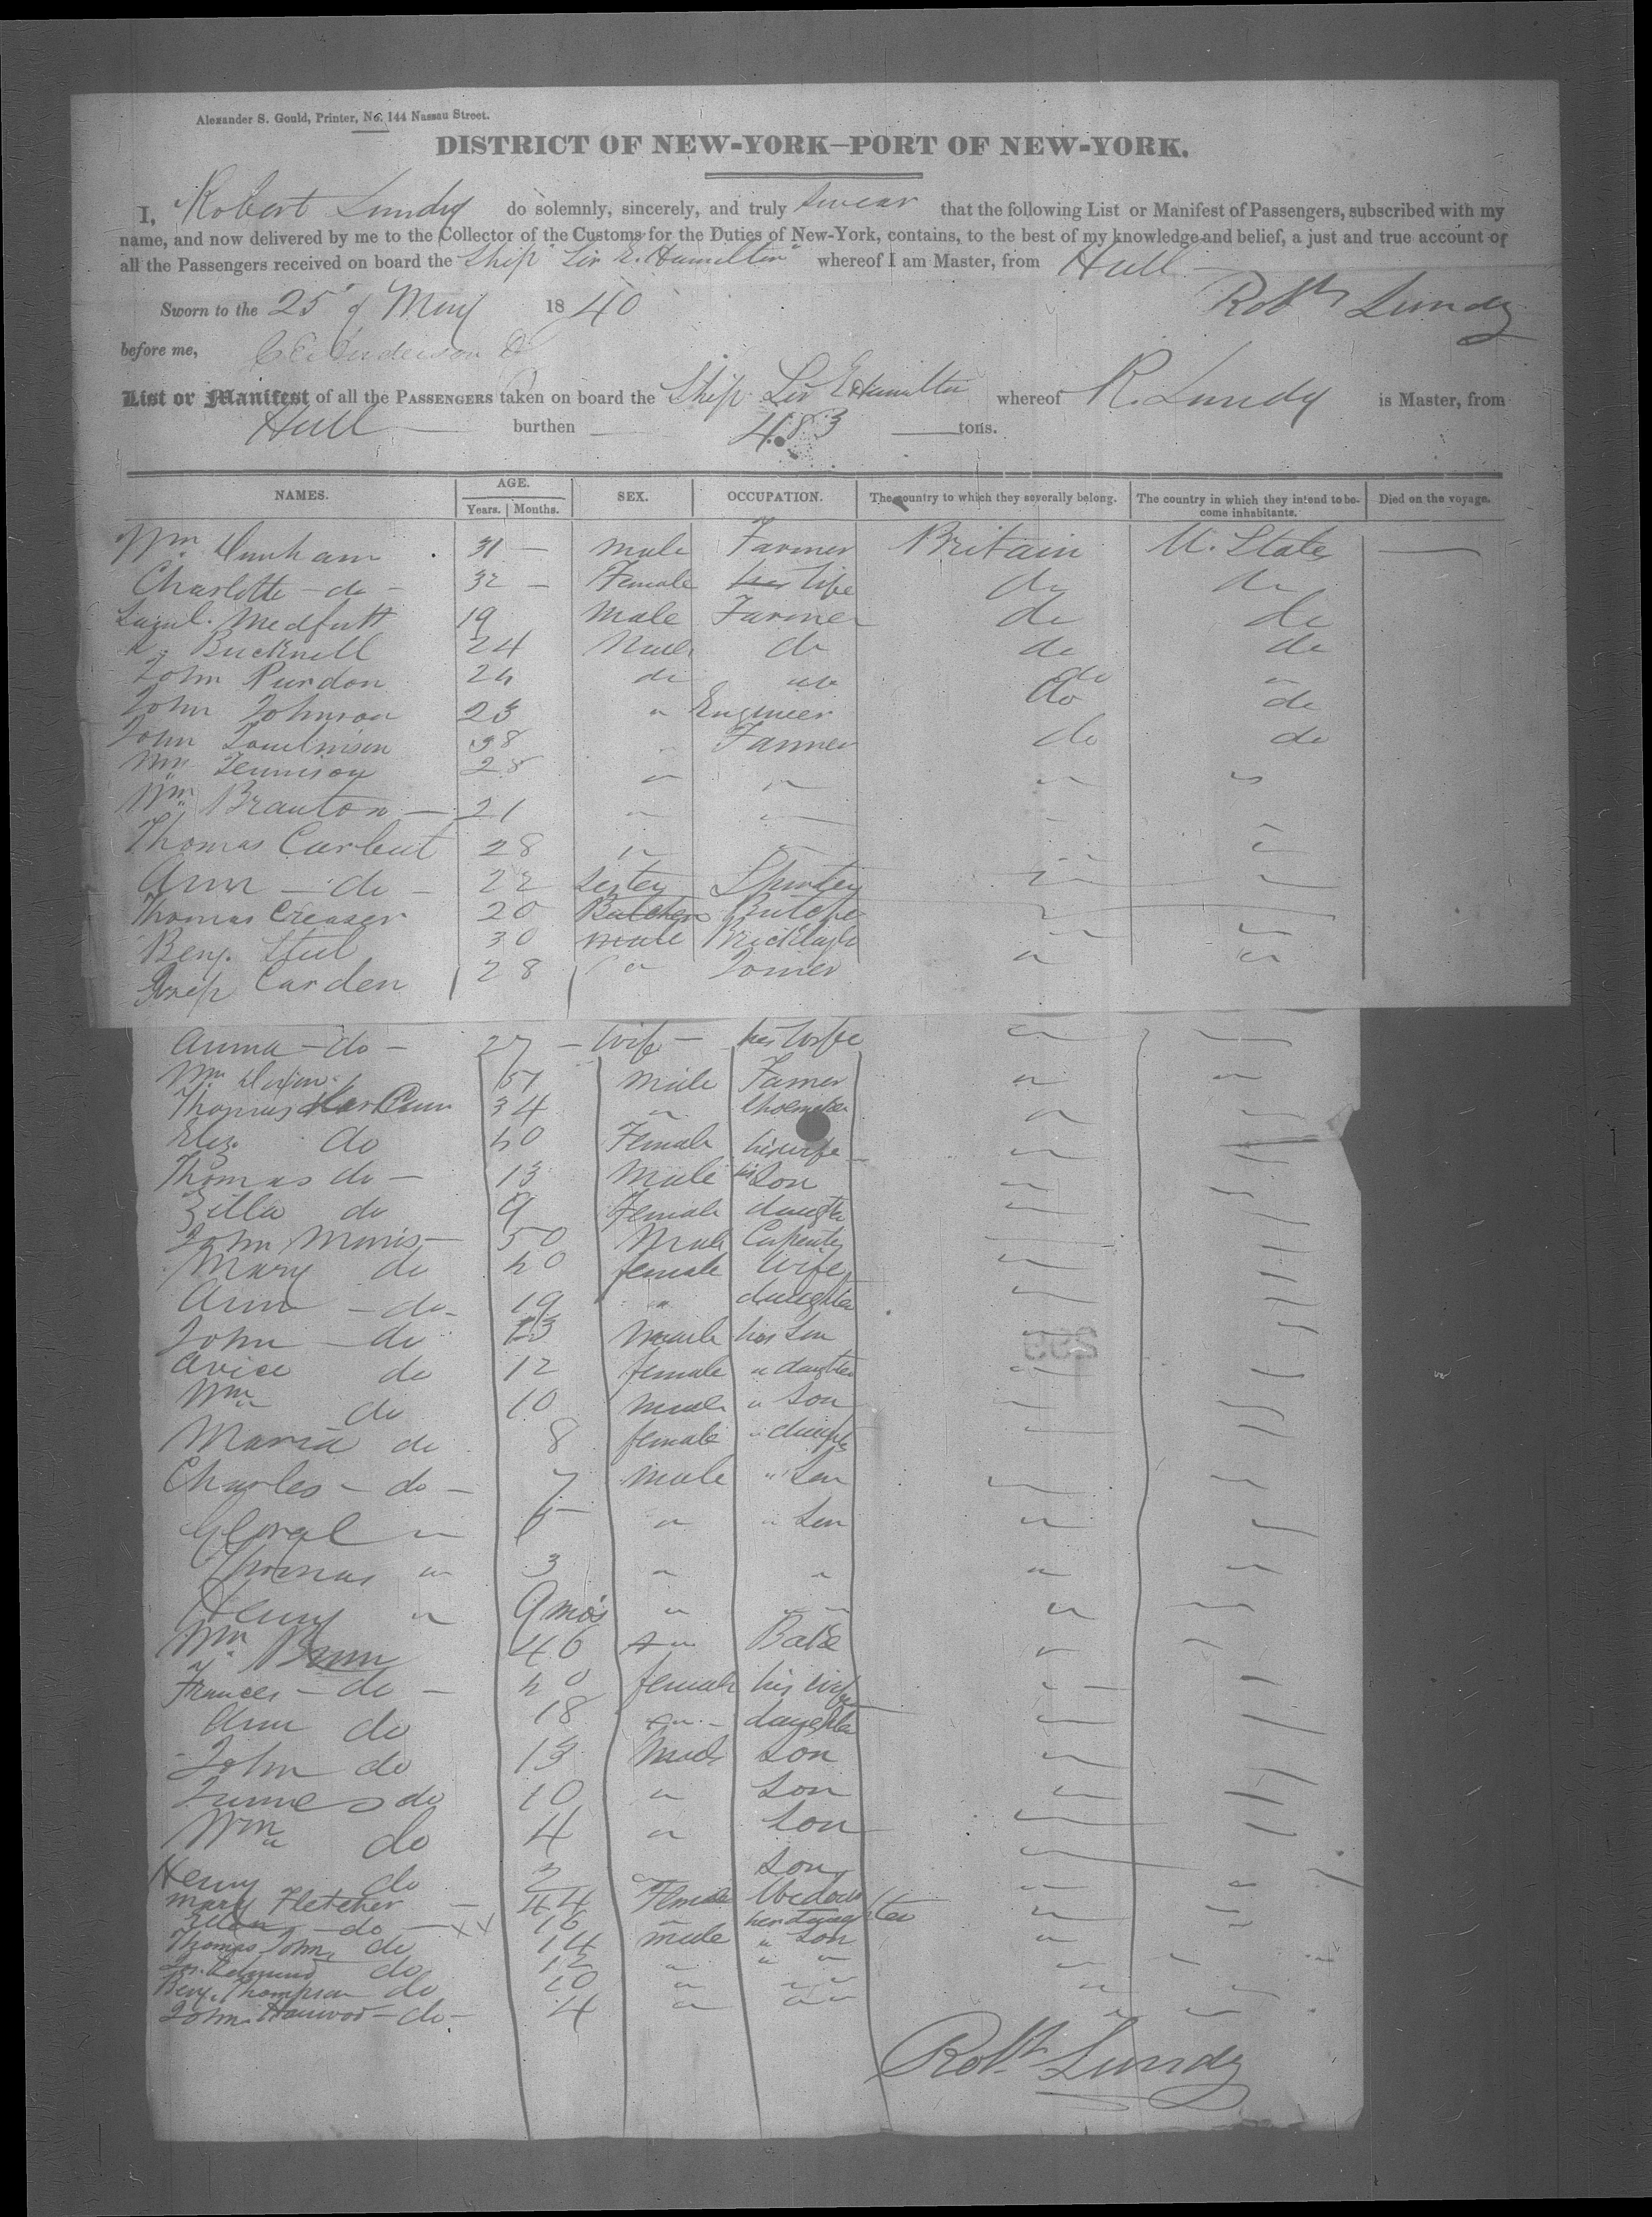 Alexander S. Gould, Printer, No. 144 Nassau Street.
DISTRICT OF NEW-YORK—PORT OF NEW-YORK.
I, Robert Lundy do solemnly, sincerely, and truly swear that the following List or Manifest of Passengers, subscribed with my
name, and now delivered by me to the Collector of the Customs for the Duties of New-York, contains, to the best of my knowledge and belief, a just and true account of
all the Passengers received on board the Ship "Sir E. Hamilton" whereof I am Master, from Hull
Sworn to the 25 of May 1840 Robt Lundy
before me,
List or Manifest of all the PASSENGERS taken on board the Ship Sir E Hamilton whereof R. Lundy is Master, from
Hull burthen 483 tons.
NAMES. AGE. Years. Months. SEX. OCCUPATION. The country to which they severally belong. The country in which they intend to become inhabitants. Died on the voyage.
Wm Dunham 31 — male Farmer Britain U. States —
Charlotte - do - 32 — Female Wife do do
Saml. Medfutt 19 male Farmer do do
Bucknell 24 Male do do do
John Purdon 24 do do do "
John Johnson 23 " Engineer do do
John Tomlinson 38 " Farmer do do
Wm Tennison 28 " " " "
Wm Branton — 21 " " " "
Thomas Carbut 28 " " " "
Ann — do - 22 sister Spinster " "
Thomas Creaser 20 Butcher Butcher " "
Benj. Steel 30 male Bricklayer " "
Joseph Carden 28 " Joiner " "
Anna - do - 27 - wife - his wife " "
Wm 51 male Farmer " "
Thomas 34 " Shoemaker " "
Eliz. do 40 Female his wife " "
Thomas do - 13 Male his Son " "
Zilla do 9 Female daughter " "
John Morris - 50 Male Carpenter " "
Mary do 40 female Wife " "
Ann - do - 19 " daughter " "
John - do 13 male his Son " "
Avice do 12 female " daughter " "
Wm do 10 male " Son " "
Maria do 8 female " daughter " "
Charles - do - 7 male " Son " "
" 5 " " Son " "
Thomas " 3 " " " "
Henry " 9 mos " " " "
Wm Bunn 46 " " "
Frances - do - 40 female his wife " "
Ann do 18 " daughter " "
John do 13 Male Son " "
James do 10 " Son " "
Wm do 4 " Son " "
Henry do 2 " Son " "
Mary Fletcher - 44 Female Widow " "
Ellen - do - xx 16 " her daughter " "
Thomas John do 14 male " Son " "
Jas. Edmund do 12 " " " " "
Benj. Thompson do 10 " " " " "
John Harwood - do - 4 " " " " "
Robt Lundy